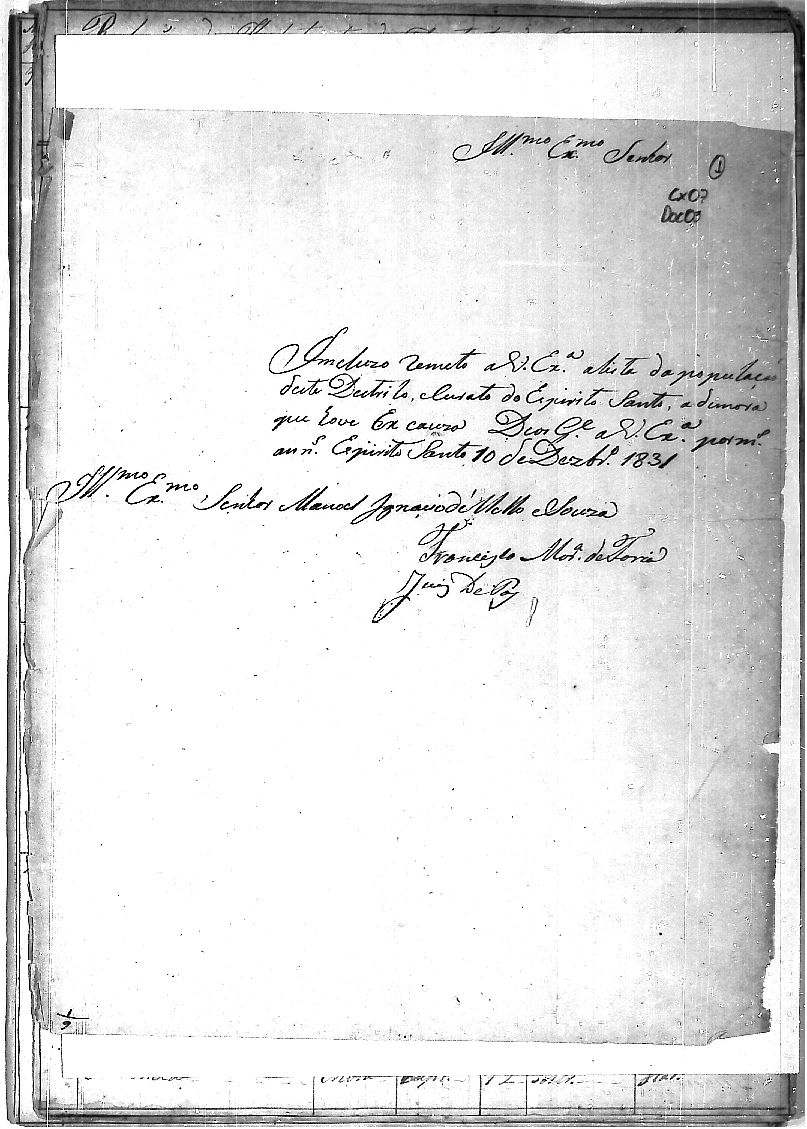 Ill.mo Ex.mo Senhor
1
Cx07
Doc03
Incluzo remeto a V. Ex.ª alista da populacaõ
deste Destrito, Curato do Espirito Santo, ademora
que houve Ex cauza Deos G.e a V. Ex.ª por m.s
an.s Espirito Santo 10 de Dezbr.o 1831
Ill.mo Ex.mo Senhor Manoel Ignacio de Mello e Souza
Francisco Mor.ª de Faria
Juiz De Paz
1
9